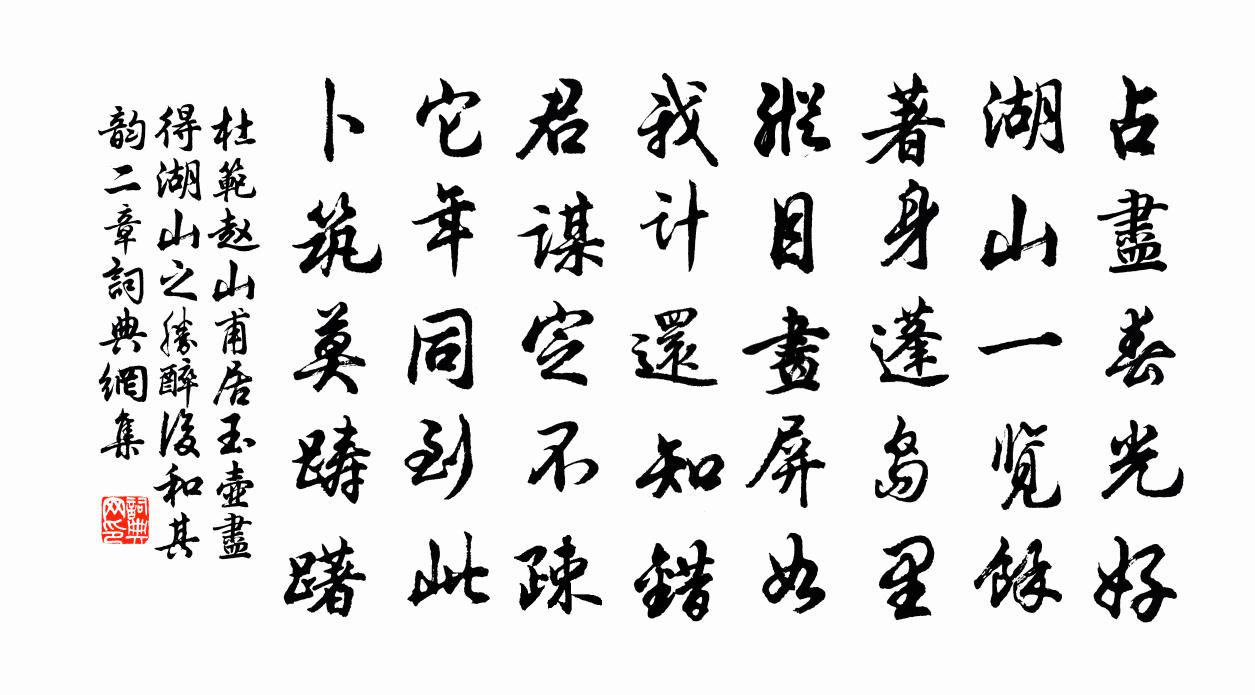 占盡春光好
湖山一覧餘
著身蓬島里
縱目畫屏如
我计還知錯
君謀定不疎
它年同到此
卜筑莫踌躇
杜範赵山甫居玉壺盡
得湖山之勝醉後和其
韵二章詞典網集
詞典
网印